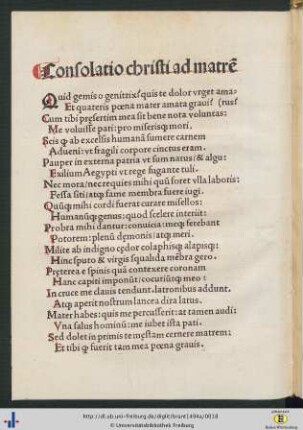 Consolatio christi ad matrē
Quid gemis o genitrix? quis te dolor vrget ama-
Et quateris pœna mater amata graui? (rus?
Cum tibi presertim mea sit bene nota voluntas:
Me voluisse pati: pro miserisq; mori.
Scis q ab excelsis humanā sumere carnem
Adueni: vt fragili corpore cinctus eram.
Pauper in externa patria vt sum natus: & algu:
Exilium Aegypti vt rege fugante tuli.
Nec mora: nec requies mihi quū foret vlla laboris:
Fessa siti: atq; fame membra fuere iugi.
Quūq; mihi cordi fuerat curare misellos:
Humanūq; genus: quod scelere interiit:
Probra mihi dantur: conuicia: meq; ferebant
Potorem: plenū dęmonis: atq; meri.
Milite ab indigno cędor colaphisq; alapisq:
Hinc sputo & virgis squalida mēbra gero.
Pręterea e spinis quā contexere coronam
Hanc capiti imponūt: cocutiūtq; meo:
In cruce me clauis tendunt. latronibus addunt.
Atq; aperit nostrum lancea dira latus.
Mater habes: quis me percusserit: at tamen audi:
Vna salus hominū: me iubet ista pati.
Sed dolet in primis te męstam cernere matrem:
Et tibi q fuerit tam mea pœna grauis.
http://dl.ub.uni-freiburg.de/diglit/brant1494a/0018
© Universitätsbibliothek Freiburg
Baden-Württemberg